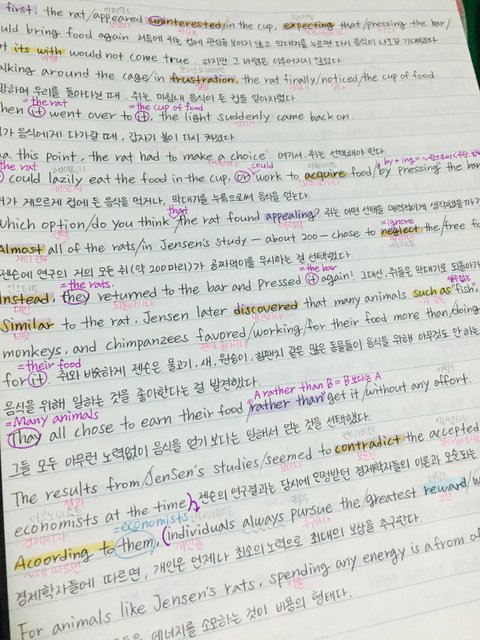 first, the rat/appeared uninterested in the cup, expecting that/pressing the bar/
uld bring food again. 처음에 쥐는 컵에 관심을 보이지 않고 막대기를 누르면 다시 음식이 나오길 기대했다.
t its wish would not come true. 하지만 그 바램은 이루어지지 않았다.
alking around the cage/in frustration, the rat finally/noticed/the cup of food
하며 우리를 돌아다닐 때, 쥐는 마침내 음식이 든 컵을 알아차렸다.
=the rat =the cup of food
hen it went over to it, the light suddenly came back on.
가 음식에게 다가갈 때, 갑자기 불이 다시 켜졌다.
this point, the rat had to "make a choice". 여기서, 쥐는 선택해야 한다.
the rat could
could lazily eat the food in the cup, or work to acquire food/by pressing the bar
게으르게 컵에 든 음식을 먹거나, 막대기를 누름으로써 음식을 얻는다.
that
Which option/do you think/the rat found appealing? 쥐는 어떤 선택을 매력적이게 생각했을까?
=ignore
Almost all of the rats/in Jensen's study – about 200 – chose to neglect the/free f
젠슨에 연구의 거의 모든 쥐(약 200마리)가 공짜먹이를 무시하는 걸 선택했다.
=the rats. =the bar
Instead, they returned to the bar and pressed it again! 그대신, 쥐들은 막대기로 되돌아가
Similar to the rat, Jensen later discovered that many animals such as "fish,
monkeys, and chimpanzees favored/working/for their food more than/doing
=their food
for it. 쥐와 비슷하게 젠슨은 물고기, 새, 원숭이, 침팬지 같은 많은 동물들이 음식을 위해 아무것도 안 하는
음식을 위해 일하는 것을 좋아한다는 걸 발견했다.
=Many animals A rather than B = B보다는 A
Thay all chose to earn their food/rather than/get it/without any effort.
그들 모두 아무런 노력없이 음식을 얻기 보다는 일해서 얻는 것을 선택했다.
The results from/Jensen's studies/seemed to contradict the accepted
economists at the time. 젠슨의 연구결과는 당시에 인정받던 경제학자들의 이론과 모순되는
경제학자 =economists
Acoording to them, individuals always pursue the/greatest reward/w
~에 따르면 개인은
경제학자들에 따르면, 개인은 언제나 최소의 노력으로 최대의 보상을 추구한다.
For animals like Jensen's rats, spending any energy is a from of
에너지를 소모하는 것이 비용의 형태다.